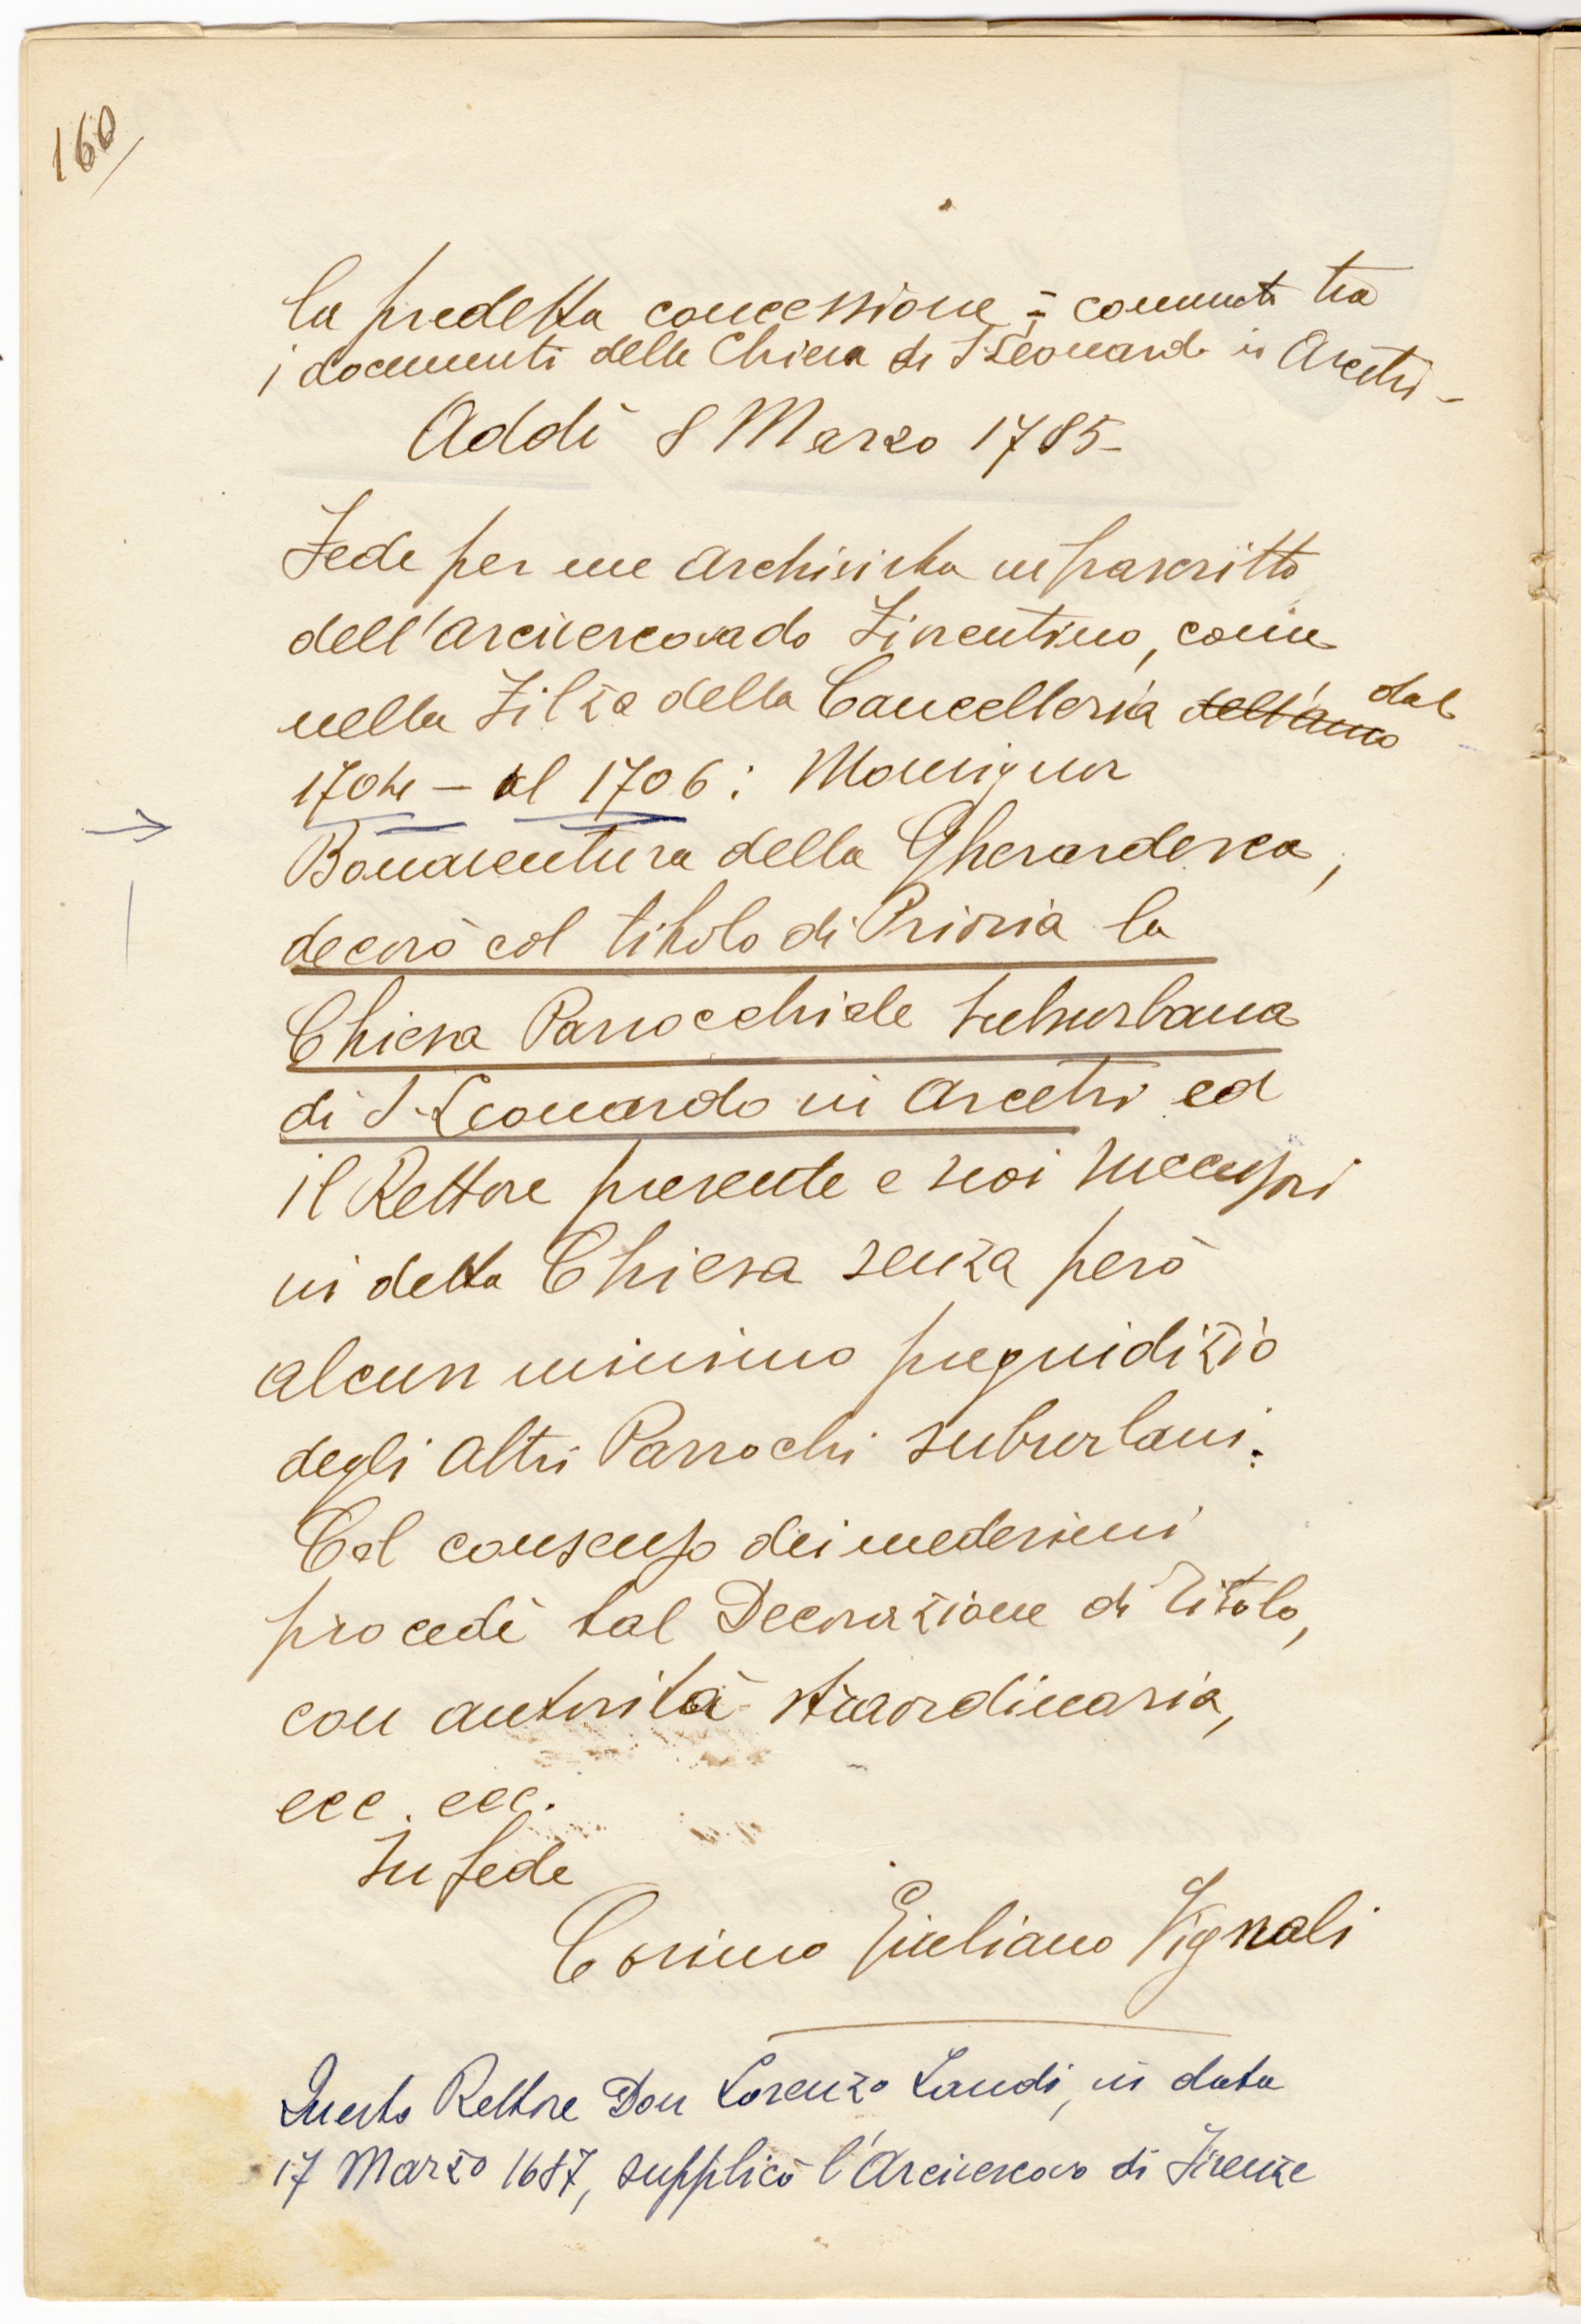 160
la predetta concessione = conservata tra
i documenti della Chiesa di S Leonardo in Arcetri -
Addì 8 Marzo 1785 -
Fede per me Archivista infrascritto
dell'Arcivescovado Fiorentino, come
nella Filza della Cancelleria dell'anno dal
1704 - al 1706: Monsignor
Bonaventura della Gherardesca,
decorò col titolo di Prioria la
Chiesa Parrocchiale suburbana
di S. Leonardo in Arcetri ed
il Rettore presente e suoi successori
in detta Chiesa senza però
alcun minimo pregiudizio
degli altri Parrochi suburbani.
Col consenso dei medesimi
procedè tal Decorazione di Titolo,
con autorità straordinaria,
ecc. ecc.
In fede
Cosimo Giuliano Vignali
Questo Rettore Don Lorenzo Landi, in data
17 Marzo 1687, supplicò l'Arcivescovo di Firenze